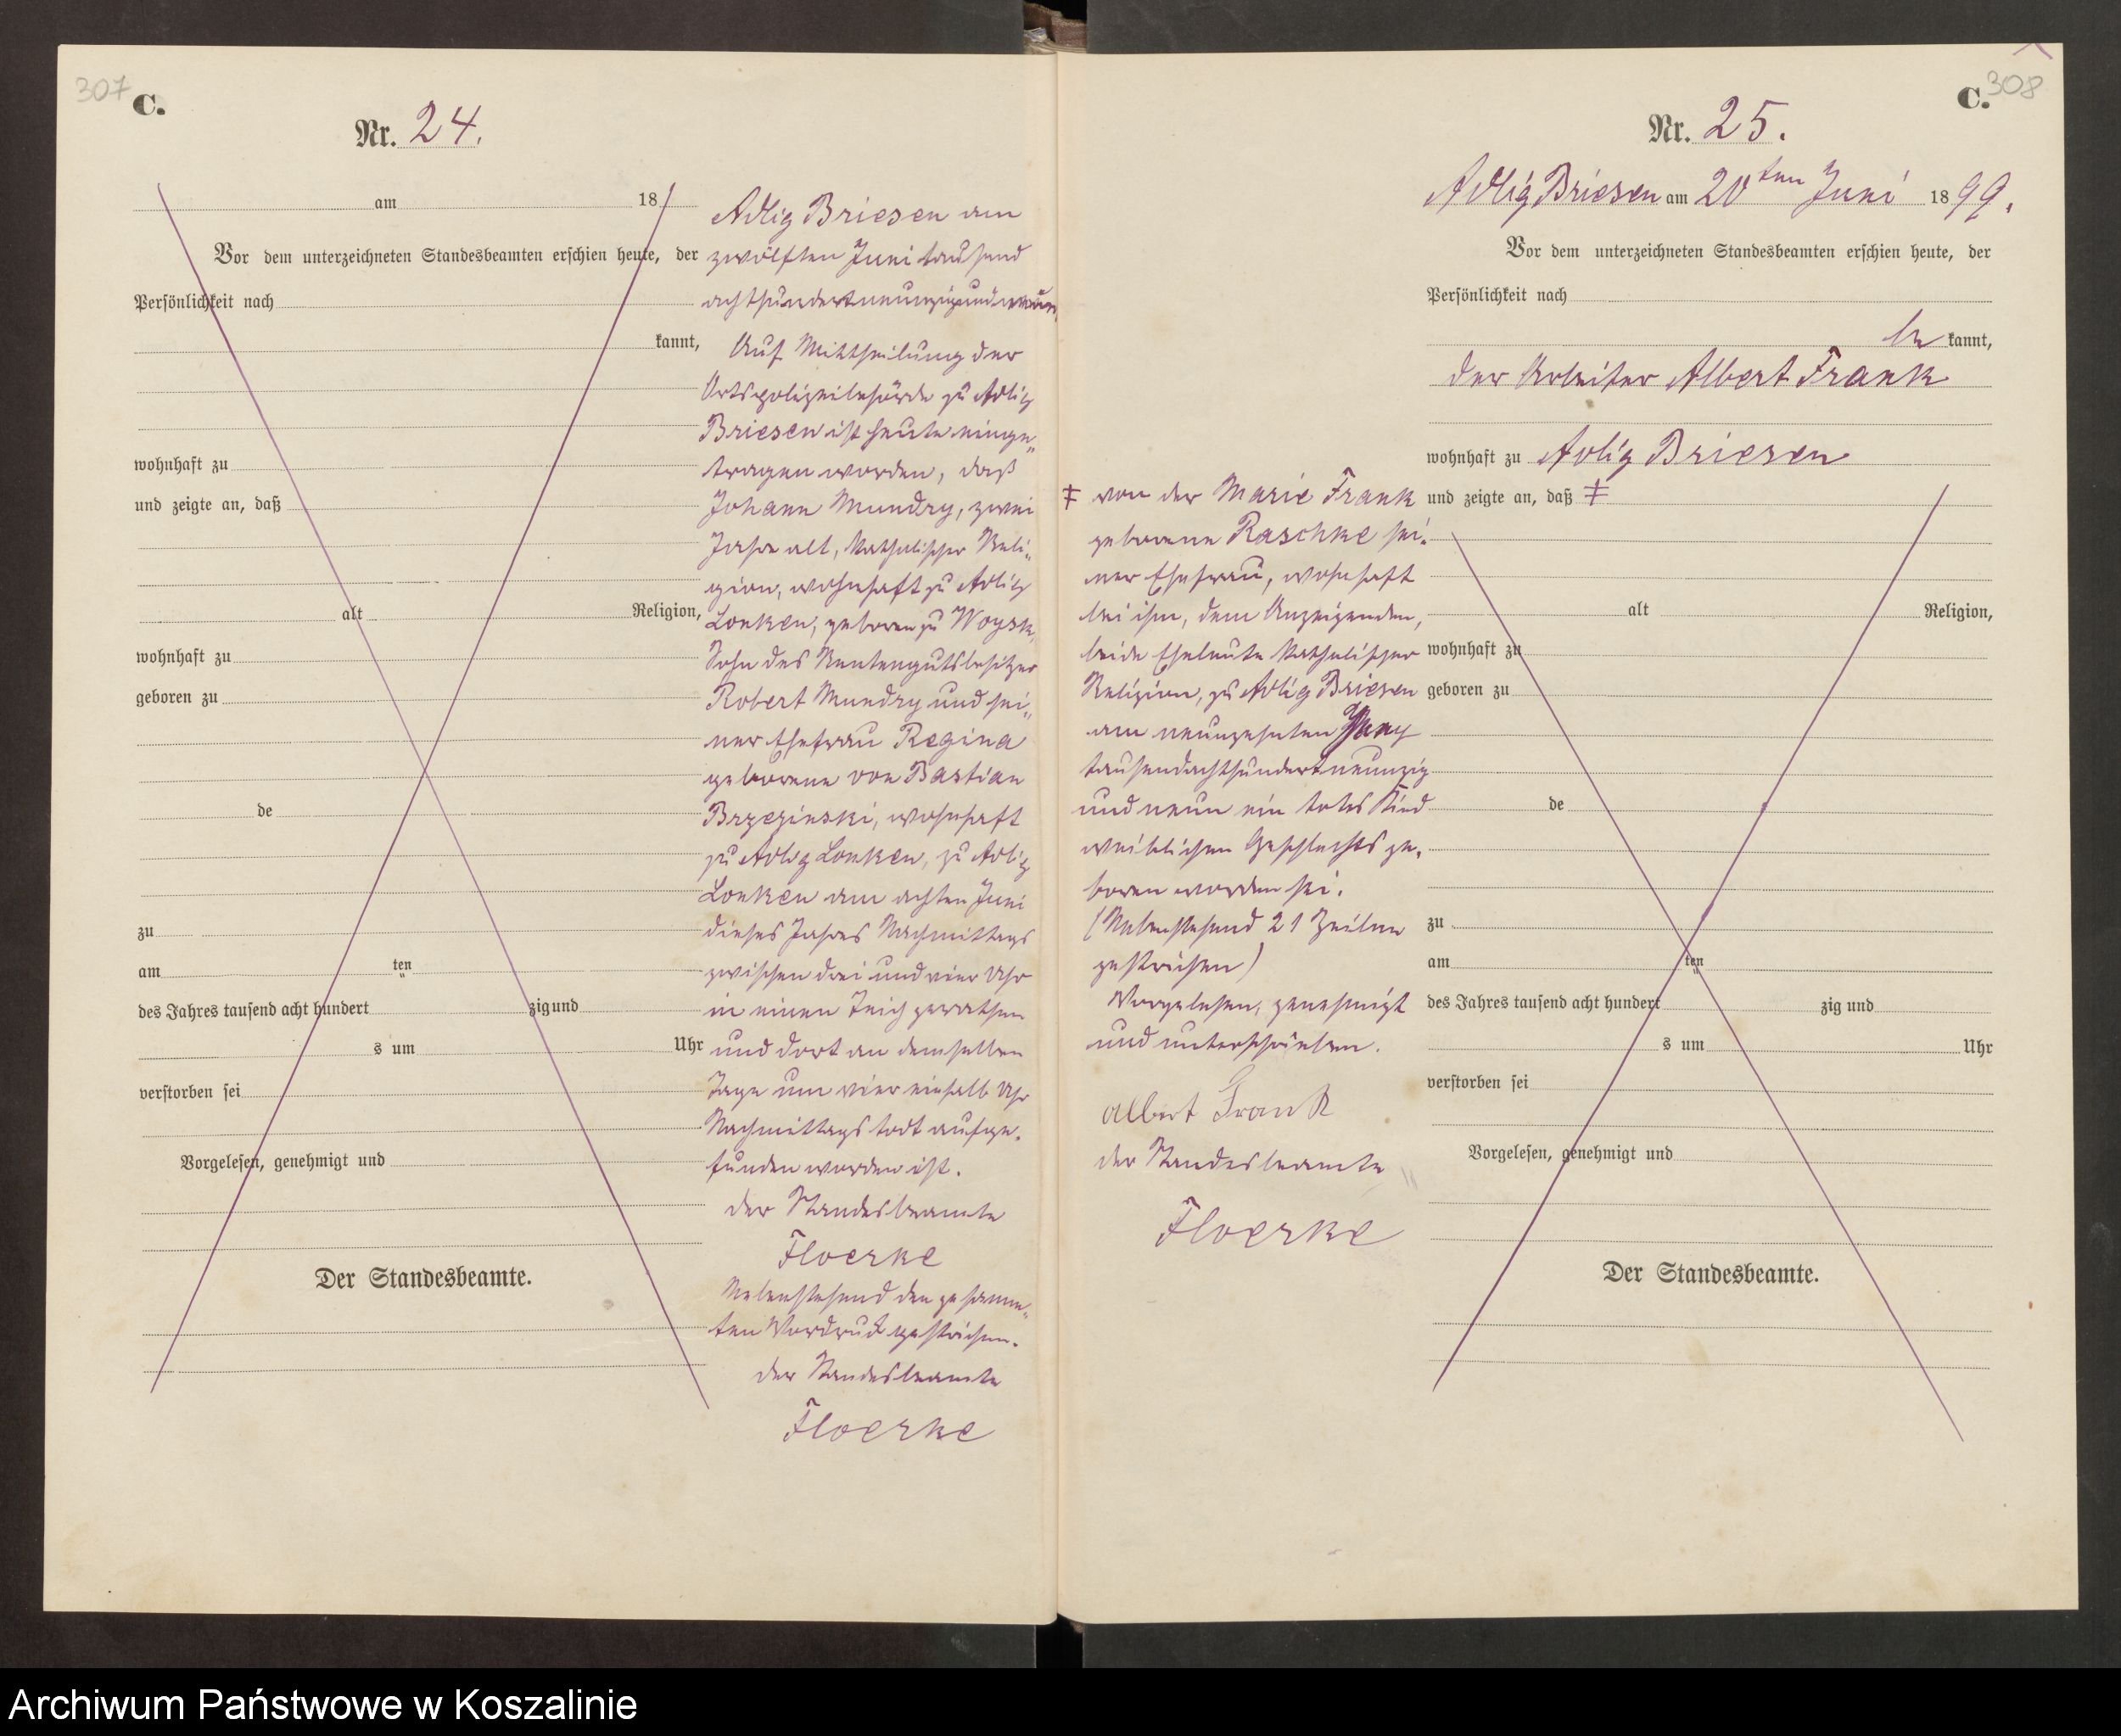 307
C.
Nr. 24.
am 18
Vor dem unterzeichneten Standesbeamten erschien heute, der
Persönlichkeit nach
kannt,
wohnhaft zu
und zeigte an, daß
alt Religion,
wohnhaft zu
geboren zu
de
zu
am ten
des Jahres tausend acht hundert zig und
s um Uhr
verstorben sei
Vorgelesen, genehmigt und
Der Standesbeamte.
Adlig Briesen am
zwölften Juni tausend
achthundertneunzigundneun.
Auf Mittheilung der
Ortspolizeibehörde zu Adlig
Briesen ist heute einge„
tragen worden, daß
Johann Mundry, zwei
Jahre alt, katholischer Reli„
gion, wohnhaft zu Adlig
Lonken, geboren zu Woysk,
Sohn des Rentengutsbesitzer
Robert Mundry und sei„
ner Ehefrau Regina
geborene von Bastian
Brzezinski, wohnhaft
zu Adlig Lonken, zu Adlig
Lonken am achten Juni
dieses Jahres Nachmittags
zwischen drei und vier Uhr
in einen Teich gerathen
und dort an demselben
Tage um vier einhalb Uhr
Nachmittags todt aufge„
funden worden ist.
der Standesbeamte
Floerke
Nebenstehend den gesamm„
ten Vordruck gestrichen.
der Standesbeamte
Floerke
308
C.
Nr. 25.
Adlig Briesen am 20ten Juni 1899.
Vor dem unterzeichneten Standesbeamten erschien heute, der
Persönlichkeit nach
be kannt,
der Arbeiter Albert Frank
wohnhaft zu Adlig Briesen
und zeigte an, daß ‡
alt Religion,
wohnhaft zu
geboren zu
de
zu
am ten
des Jahres tausend acht hundert zig und
s um Uhr
verstorben sei
Vorgelesen, genehmigt und
Der Standesbeamte.
‡ von der Marie Frank
geborene Raschke sei„
ner Ehefrau, wohnhaft
bei ihm, dem Anzeigenden,
beide Eheleute katholischer
Religion, zu Adlig Briesen
am neunzehnten
tausendachthundertneunzig
und neun ein totes Kind
weiblichen Geschlechts ge„
boren worden sei.
(Nebenstehend 21 Zeilen
gestrichen)
Vorgelesen, genehmigt
und unterschrieben.
Albert Frank
der Standesbeamte
Floerke
Archiwum Państwowe w Koszalinie